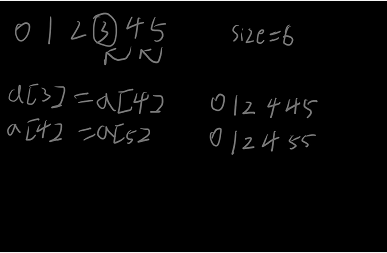 0 1 2 3 4 5 size=6
a[3]=a[4] 0 1 2 4 4 5
a[4]=a[5] 0 1 2 4 5 5